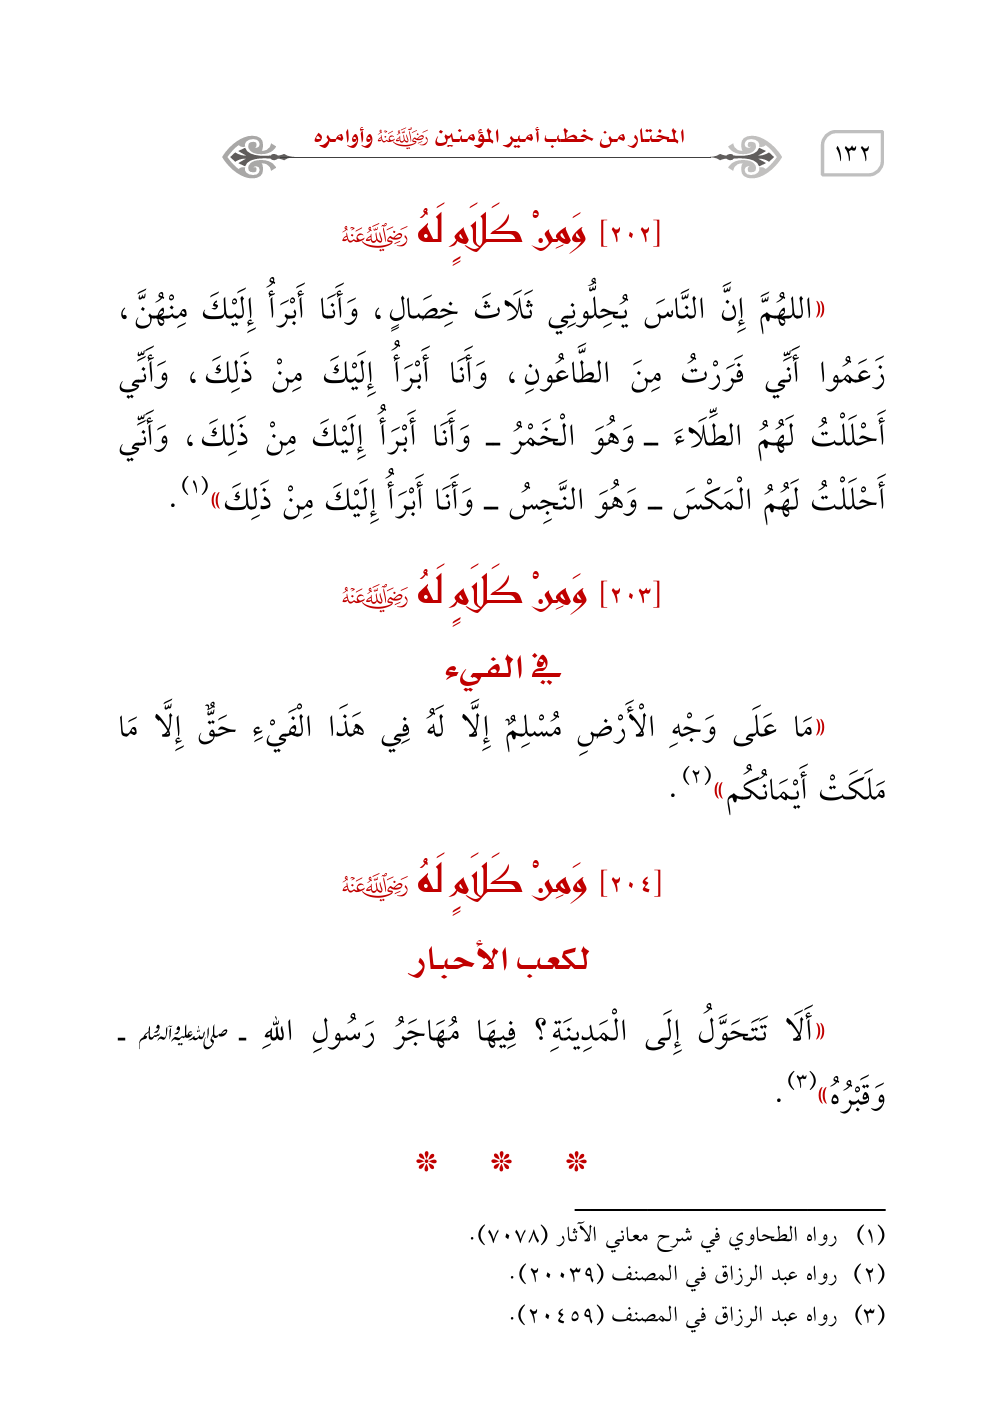 ١٣٢
المختار من خطب أمير المؤمنين رَضِيَ اللَّهُ عَنْهُ وأوامره
[٢٠٢] وَمِنْ كَلَامٍ لَهُ رَضِيَ اللَّهُ عَنْهُ
«اللهُمَّ إِنَّ النَّاسَ يُحِلُّونِي ثَلَاثَ خِصَالٍ، وَأَنَا أَبْرَأُ إِلَيْكَ مِنْهُنَّ،
زَعَمُوا أَنِّي فَرَرْتُ مِنَ الطَّاعُونِ، وَأَنَا أَبْرَأُ إِلَيْكَ مِنْ ذَلِكَ، وَأَنِّي
أَحْلَلْتُ لَهُمُ الطِّلَاءَ ـ وَهُوَ الْخَمْرُ ـ وَأَنَا أَبْرَأُ إِلَيْكَ مِنْ ذَلِكَ، وَأَنِّي
أَحْلَلْتُ لَهُمُ الْمَكْسَ ـ وَهُوَ النَّجِسُ ـ وَأَنَا أَبْرَأُ إِلَيْكَ مِنْ ذَلِكَ»(١).
[٢٠٣] وَمِنْ كَلَامٍ لَهُ رَضِيَ اللَّهُ عَنْهُ
في الفيء
«مَا عَلَى وَجْهِ الْأَرْضِ مُسْلِمٌ إِلَّا لَهُ فِي هَذَا الْفَيْءِ حَقٌّ إِلَّا مَا
مَلَكَتْ أَيْمَانُكُم»(٢).
[٢٠٤] وَمِنْ كَلَامٍ لَهُ رَضِيَ اللَّهُ عَنْهُ
لكعب الأحبار
«أَلَا تَتَحَوَّلُ إِلَى الْمَدِينَةِ؟ فِيهَا مُهَاجَرُ رَسُولِ اللهِ ـ صلى الله عليه وآله وسلم ـ
وَقَبْرُهُ»(٣).
(١) رواه الطحاوي في شرح معاني الآثار (٧٠٧٨).
(٢) رواه عبد الرزاق في المصنف (٢٠٠٣٩).
(٣) رواه عبد الرزاق في المصنف (٢٠٤٥٩).